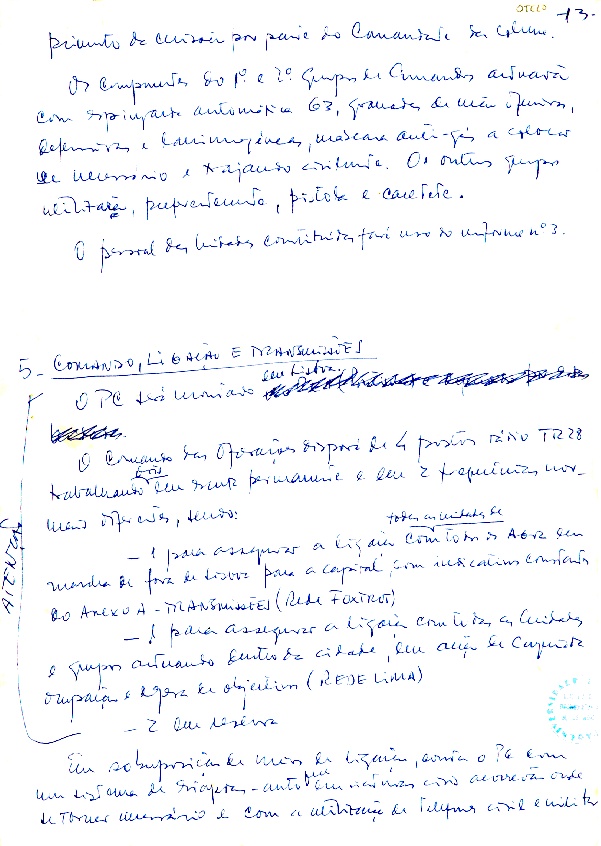 OTELO 13.
primento da missão por parte do Comandante da coluna.
Os componentes do 1º e 2º grupos de Comandos actuarão
com espingarda automática G3, granadas de mão ofensivas,
defensivas e lacrimogéneas, máscara anti-gás a colocar
se necessário e trajando civilmente. Os outros grupos
utilizarão, preferentemente, pistola e cacetete.
O pessoal das Unidades constituídas fará uso do uniforme nº 3.
5 - COMANDO, LIGAÇÃO E TRANSMISSÕES
em Lisboa.
O PC será montado
O Comando das Operações disporá de 4 postos rádio TR28
trabalhando em escuta permanente e em 2 frequências nor-
mais diferentes, sendo:
todas as unidades de
- 1 para assegurar a ligação com em
marcha de fora de Lisboa para a capital, com indicativos constantes
do ANEXO A - TRANSMISSÕES (Rede FOXTROT)
- 1 para assegurar a ligação com todas as Unidades
e grupos actuando dentro da cidade, em acção de conquista
ocupação e defesa de objectivos (REDE LIMA)
- 2 em reserva
ATENÇÃO
Em sobreposição de meios de ligação, conta o PC com
um sistema de estafetas-auto em viaturas civis acorrerão onde
se tornar necessário e com a utilização de telefone civil e militar